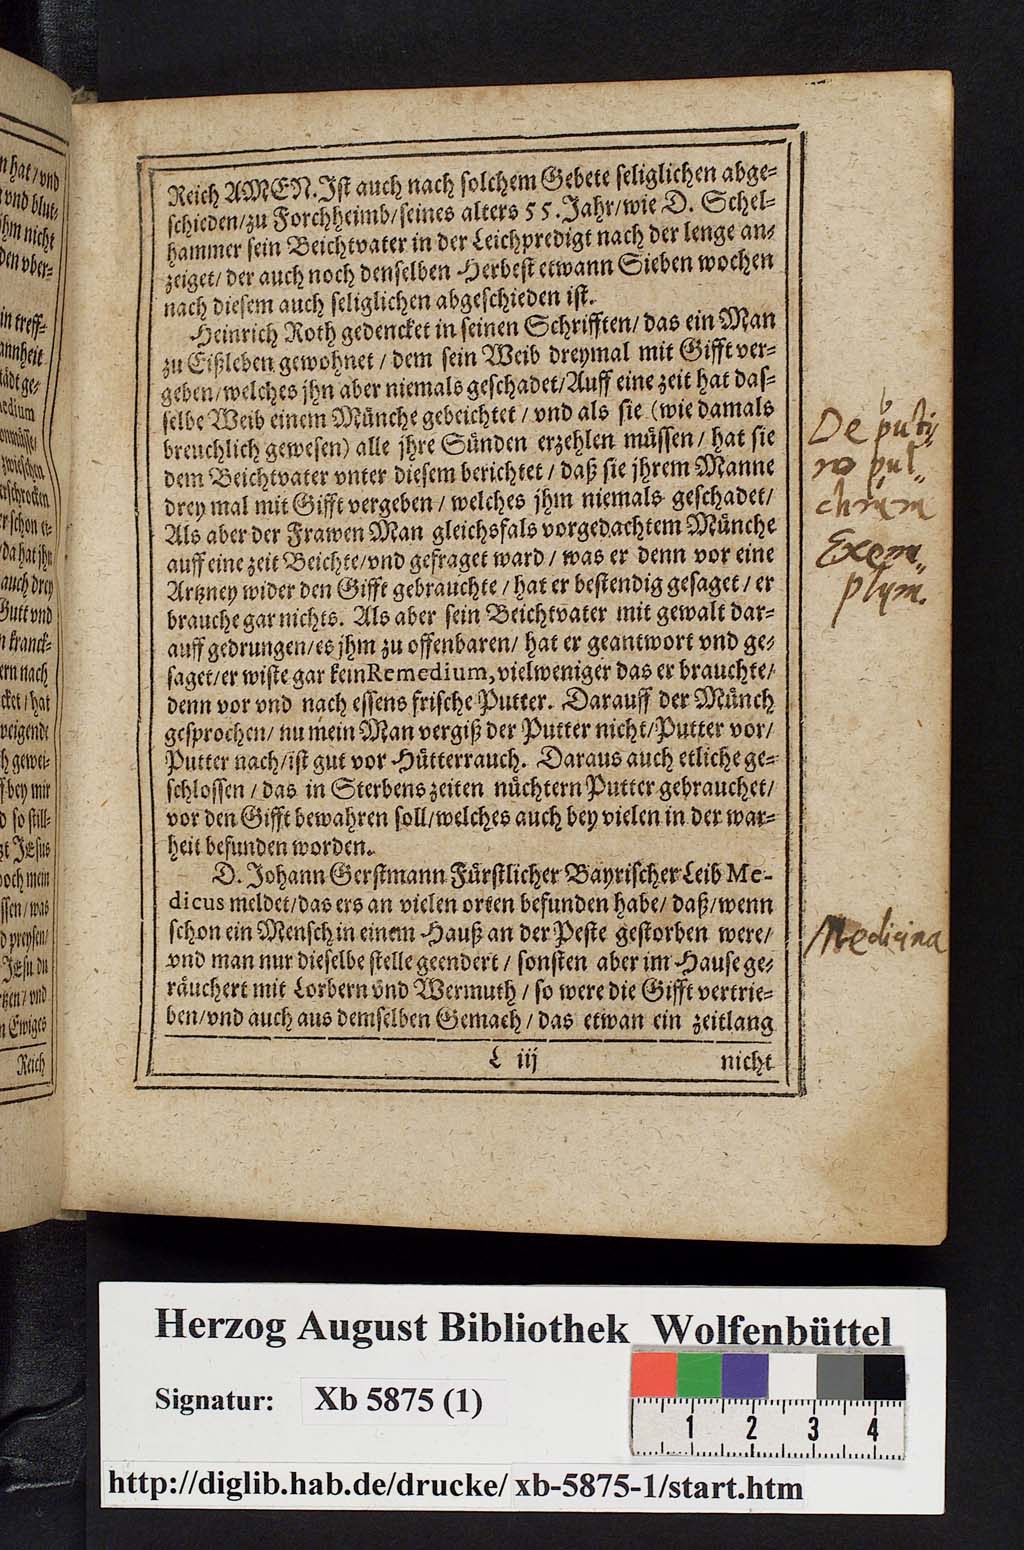 Reich AMEN. Ist auch nach solchem Gebete seliglichen abge-
schieden/zu Forchheimb/seines alters 55. Jahr/wie D. Schel-
hammer sein Beichtvater in der Leichpredigt nach der lenge an-
zeiget/ der auch noch denselben Herbest etwann Sieben wochen
nach diesem auch seliglichen abgeschieden ist.
Heinrich Roth gedencket in seinen Schrifften/ das ein Man
zu Eißleben gewohnet / dem sein Weib dreymal mit Gifft ver-
geben/welches jhn aber niemals geschadet/Auff eine zeit hat das-
selbe Weib einem Münche gebeichtet / vnd als sie (wie damals
breuchlich gewesen) alle jhre Sünden erzehlen müssen/ hat sie
dem Beichtvater vnter diesem berichtet / daß sie jhrem Manne
drey mal mit Gifft vergeben / welches jhm niemals geschadet/
Als aber der Frawen Man gleichsfals vorgedachtem Münche
auff eine zeit Beichte/vnd gefraget ward / was er denn vor eine
Artzney wider den Gifft gebrauchte / hat er bestendig gesaget / er
brauche gar nichts. Als aber sein Beichtvater mit gewalt dar-
auff gedrungen/es jhm zu offenbaren/ hat er geantwort vnd ge-
saget/er wiste gar kein Remedium, vielweniger das er brauchte/
denn vor vnd nach essens frische Putter. Darauff der Münch
gesprochen/ nu mein Man vergiß der Putter nicht/Putter vor/
Putter nach/ist gut vor Hütterrauch. Daraus auch etliche ge-
schlossen / das in Sterbenszeiten nüchtern Putter gebrauchet/
vor den Gifft bewahren soll/welches auch bey vielen in der war-
heit befunden worden.
D. Johann Gerstmann Fürstlicher Bayrischer Leib Me-
dicus meldet/das ers an vielen orten befunden habe/ daß/wenn
schon ein Mensch in einem Hauß an der Peste gestorben were/
vnd man nur dieselbe stelle geendert / sonsten aber im Hause ge-
räuchert mit Lorbern vnd Wermuth / so were die Gifft vertrie-
ben/vnd auch aus demselben Gemach / das etwan ein zeitlang
L iij nicht
De puty
ro pul-
chrum
Exem-
plum.
Medicina
in treff-
annheit
Jesus
Jesu du
n Ewiges
Reich
Herzog August Bibliothek Wolfenbüttel
Signatur: Xb 5875 (1)
1 2 3 4
http://diglib.hab.de/drucke/ xb-5875-1/start.htm